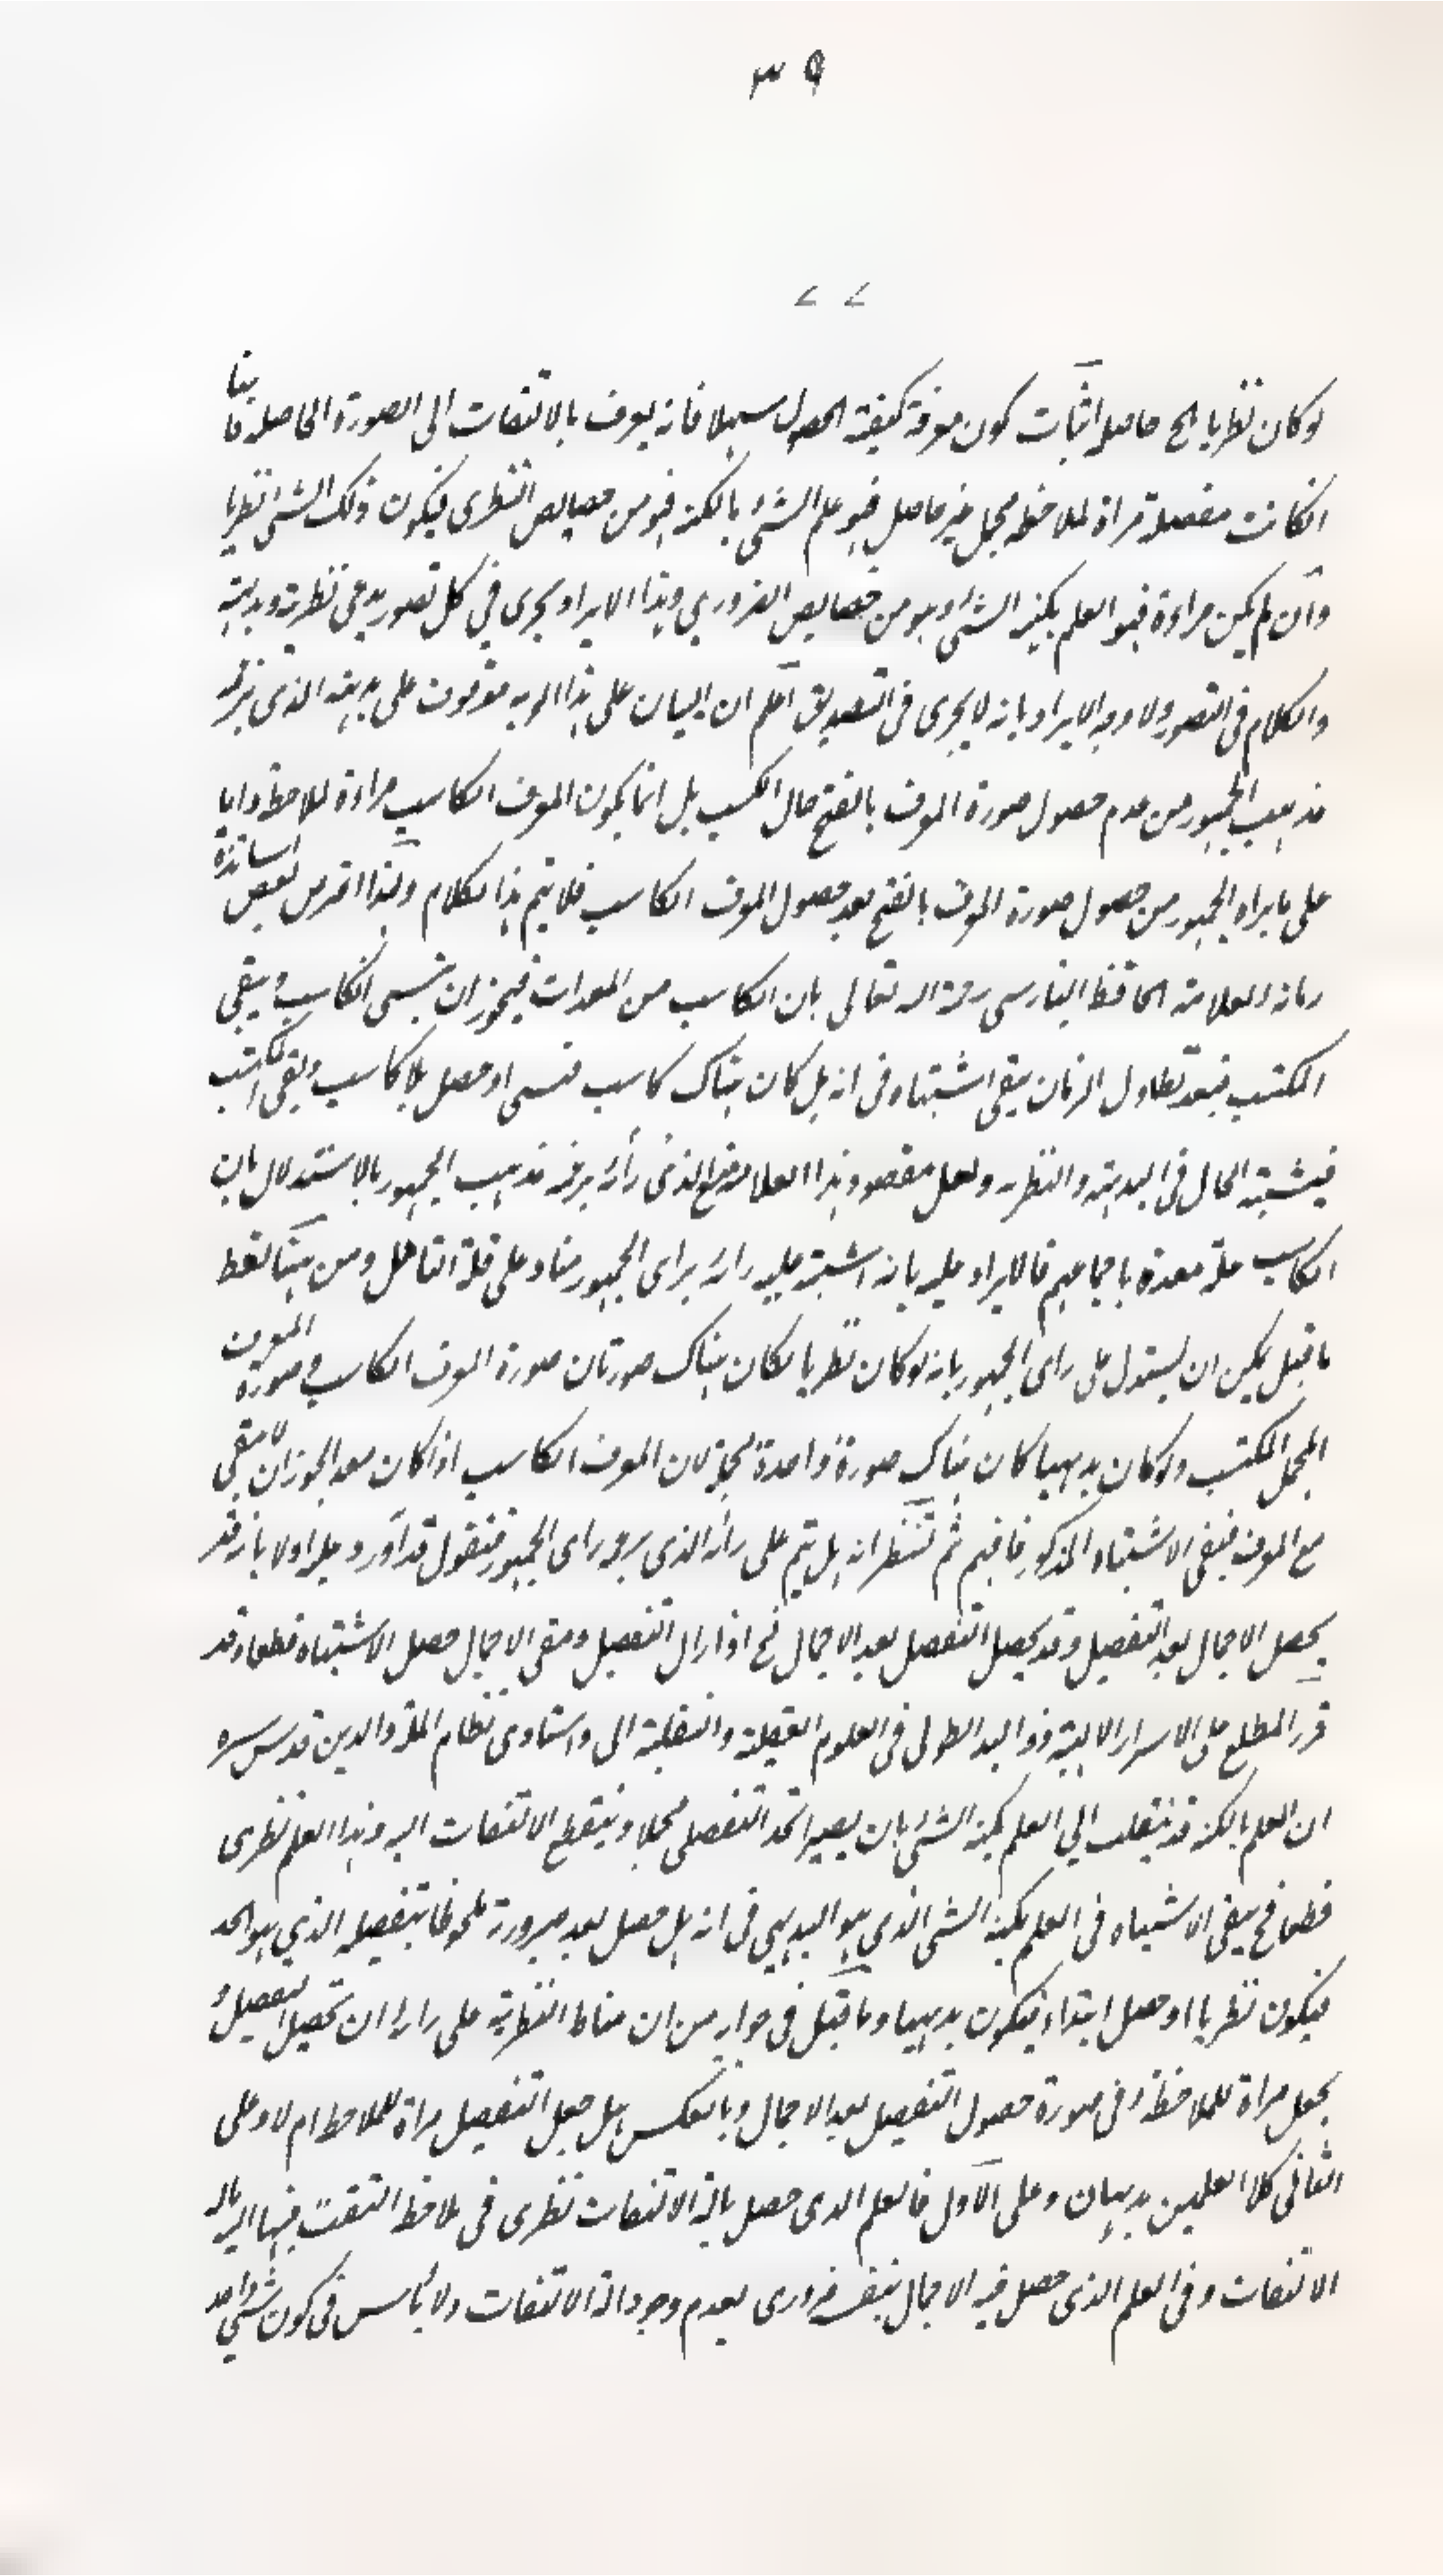 ٣٩
لوكان نظريا الخ حاصله اثبات كون معرفة كيفية الحصول سهلا فانه يعرف بالالتفات الى الصورة الحاصلة فانها
انكانت مفصلة مراة لملاحظة مجمل غير حاصل فهو علم الشئ بالكنه فهو من خصايص النظرى فيكون ذلك الشئ نظريا
وان لم يكن مراءة فهو العلم بكنه الشئ وهو من خصايص الضرورى وهذا الايراد يجرى فى كل تصور يدعى نظرية وبديهية
والكلام فى التصور ولا وجه الايراد بانه لا يجرى فى التصديق اعلم ان البيان على هذا الوجه موقوف على بديهته الذى يزعمه
مذهب الجمهور من عدم حصول صورة المعرف بالفتح حال الكسب بل انما يكون المعرف الكاسب مراءة لملاحظة واما
على ما يراه الجمهور من حصول صورة المعرف بالفتح بعد حصول المعرف الكاسب فلا يتم هذا الكلام ولهذا اعترض بعض اساتذة
زمانه العلامة الحافظ البنارسى رحمة الله تعالى بان الكاسب من المعدات فيجوز ان ينسى الكاسب ويبقى
المكتسب فبعد تطاول الزمان يبقى اشتباه فى انه هل كان هناك كاسب فنسى او حصل بلا كاسب وبقى المكتسب
فيشتبه الحال فى البديهة والنظرية ولعل مقصود هذا العلامة الذى رأه يزعمه مذهب الجمهور بالاستدلال بان
الكاسب علة معدة باجماعهم فالايراد عليه بانه اشتبه عليه رايه براى الجمهور بناء على قلة التامل ومن ههنا سقط
ما قيل يمكن ان يستدل على راى الجمهور بانه لوكان نظريا لكان هناك صورتان صورة المعرف الكاسب وصورة المعرف
المجمل المكتسب ولوكان بديهيا كان هناك صورة واحدة مجملة لان المعرف الكاسب اذا كان معد الجوز ان لا يبقى
مع المعرف فبقى الاشتباه المذكور فافهم ثم ننظر انه هل يتم على رأيه الذى يرى راى الجمهور فنقول قد اورد عليه اولا بانه قد
يحصل الاجمال بعد التفصيل وقد يحصل التفصيل بعد الاجمال فح اذا زال التفصيل وبقى الاجمال حصل الاشتباه قطعا وقد
قرر المطلع على الاسرار الالهية ذو اليد الطولى فى العلوم العقلية والنقلية ابى واستاذى نظام الملة والدين قدس سره
ان العلم بالكنه قد ينقلب الى العلم بكنه الشئ بان يصير الحد التفصيلى مجملا وينقطع الالتفات اليه وهذا العلم نظرى
قطعا فح يبقى الاشتباه فى العلم بكنه الشئ الذى هو البديهى فى انه هل حصل بعد صيرورته ملحوظا بتفصيله الذى هو الحد
فيكون نظريا او حصل ابتداء فيكون بديهيا وما قيل فى جوابه من ان مناط النظرية على رايه ان يحصل التفصيل و
يجعل مراة للملاحظة وفى صورة حصول التفصيل بعد الاجمال وبالعكس هل جعل التفصيل مراة للملاحظة ام لا وعلى
الثانى كلا العلمين بديهيان وعلى الاول فالعلم الذى حصل بالة الالتفات نظرى فى ملاحظة التفت فيها اليه بالة
الالتفات وفى العلم الذى حصل فيه الاجمال بنفسه ضرورى لعدم وجود الة الالتفات ولا باس فى كون شئ واحد